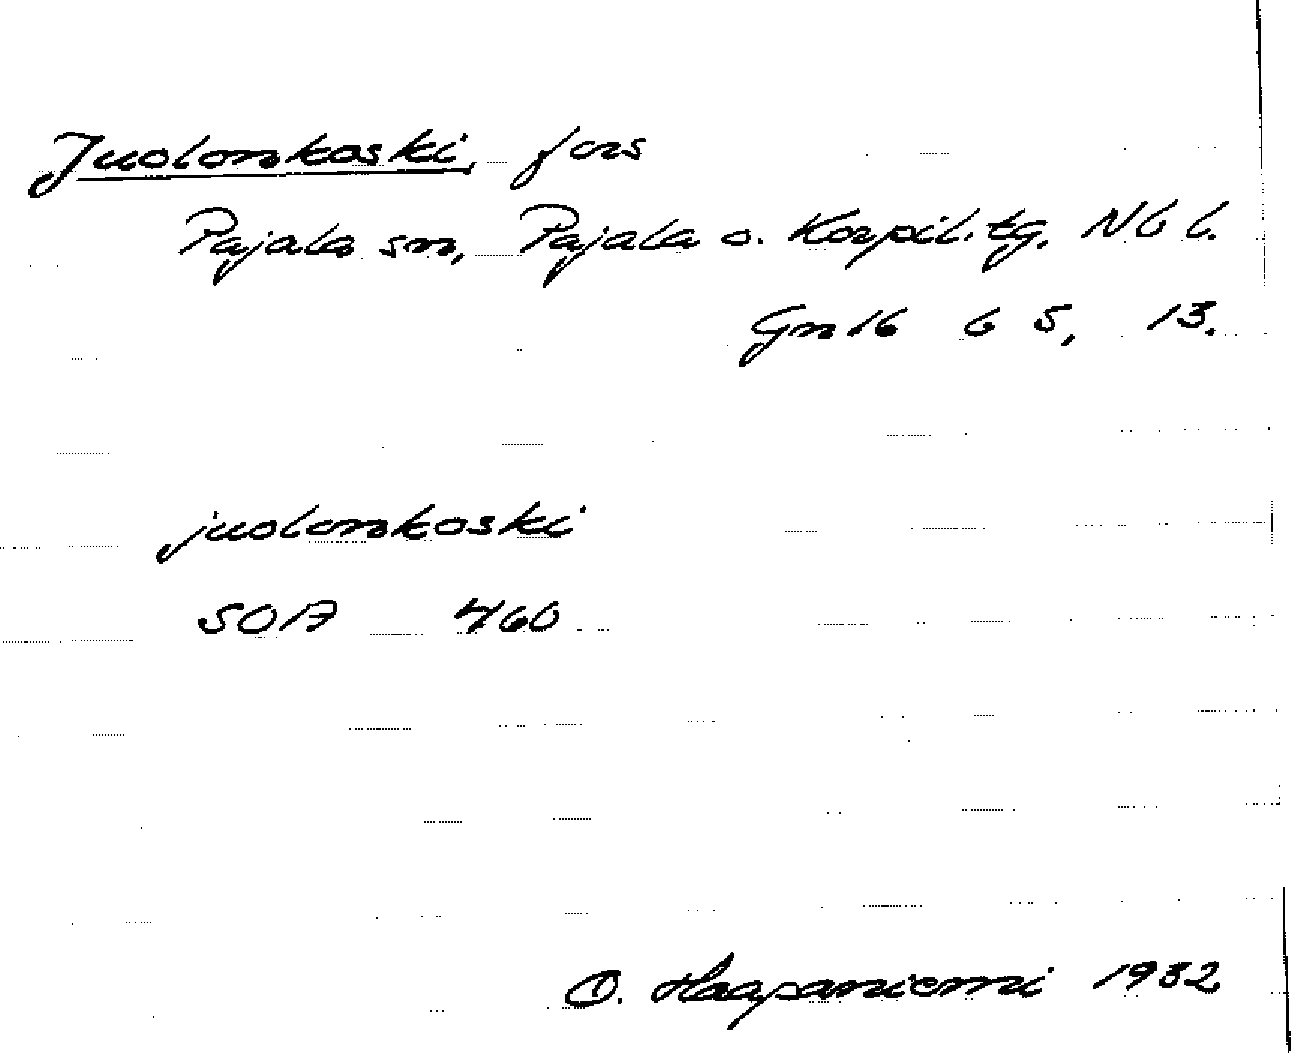 Juolonkoski, fors
Pajala sn, Pajala o. Korpil. tg. Nb l.
Gn 16 b 5, 13.
juolonkoski
SOA 460
O. Haapaniemi 1932